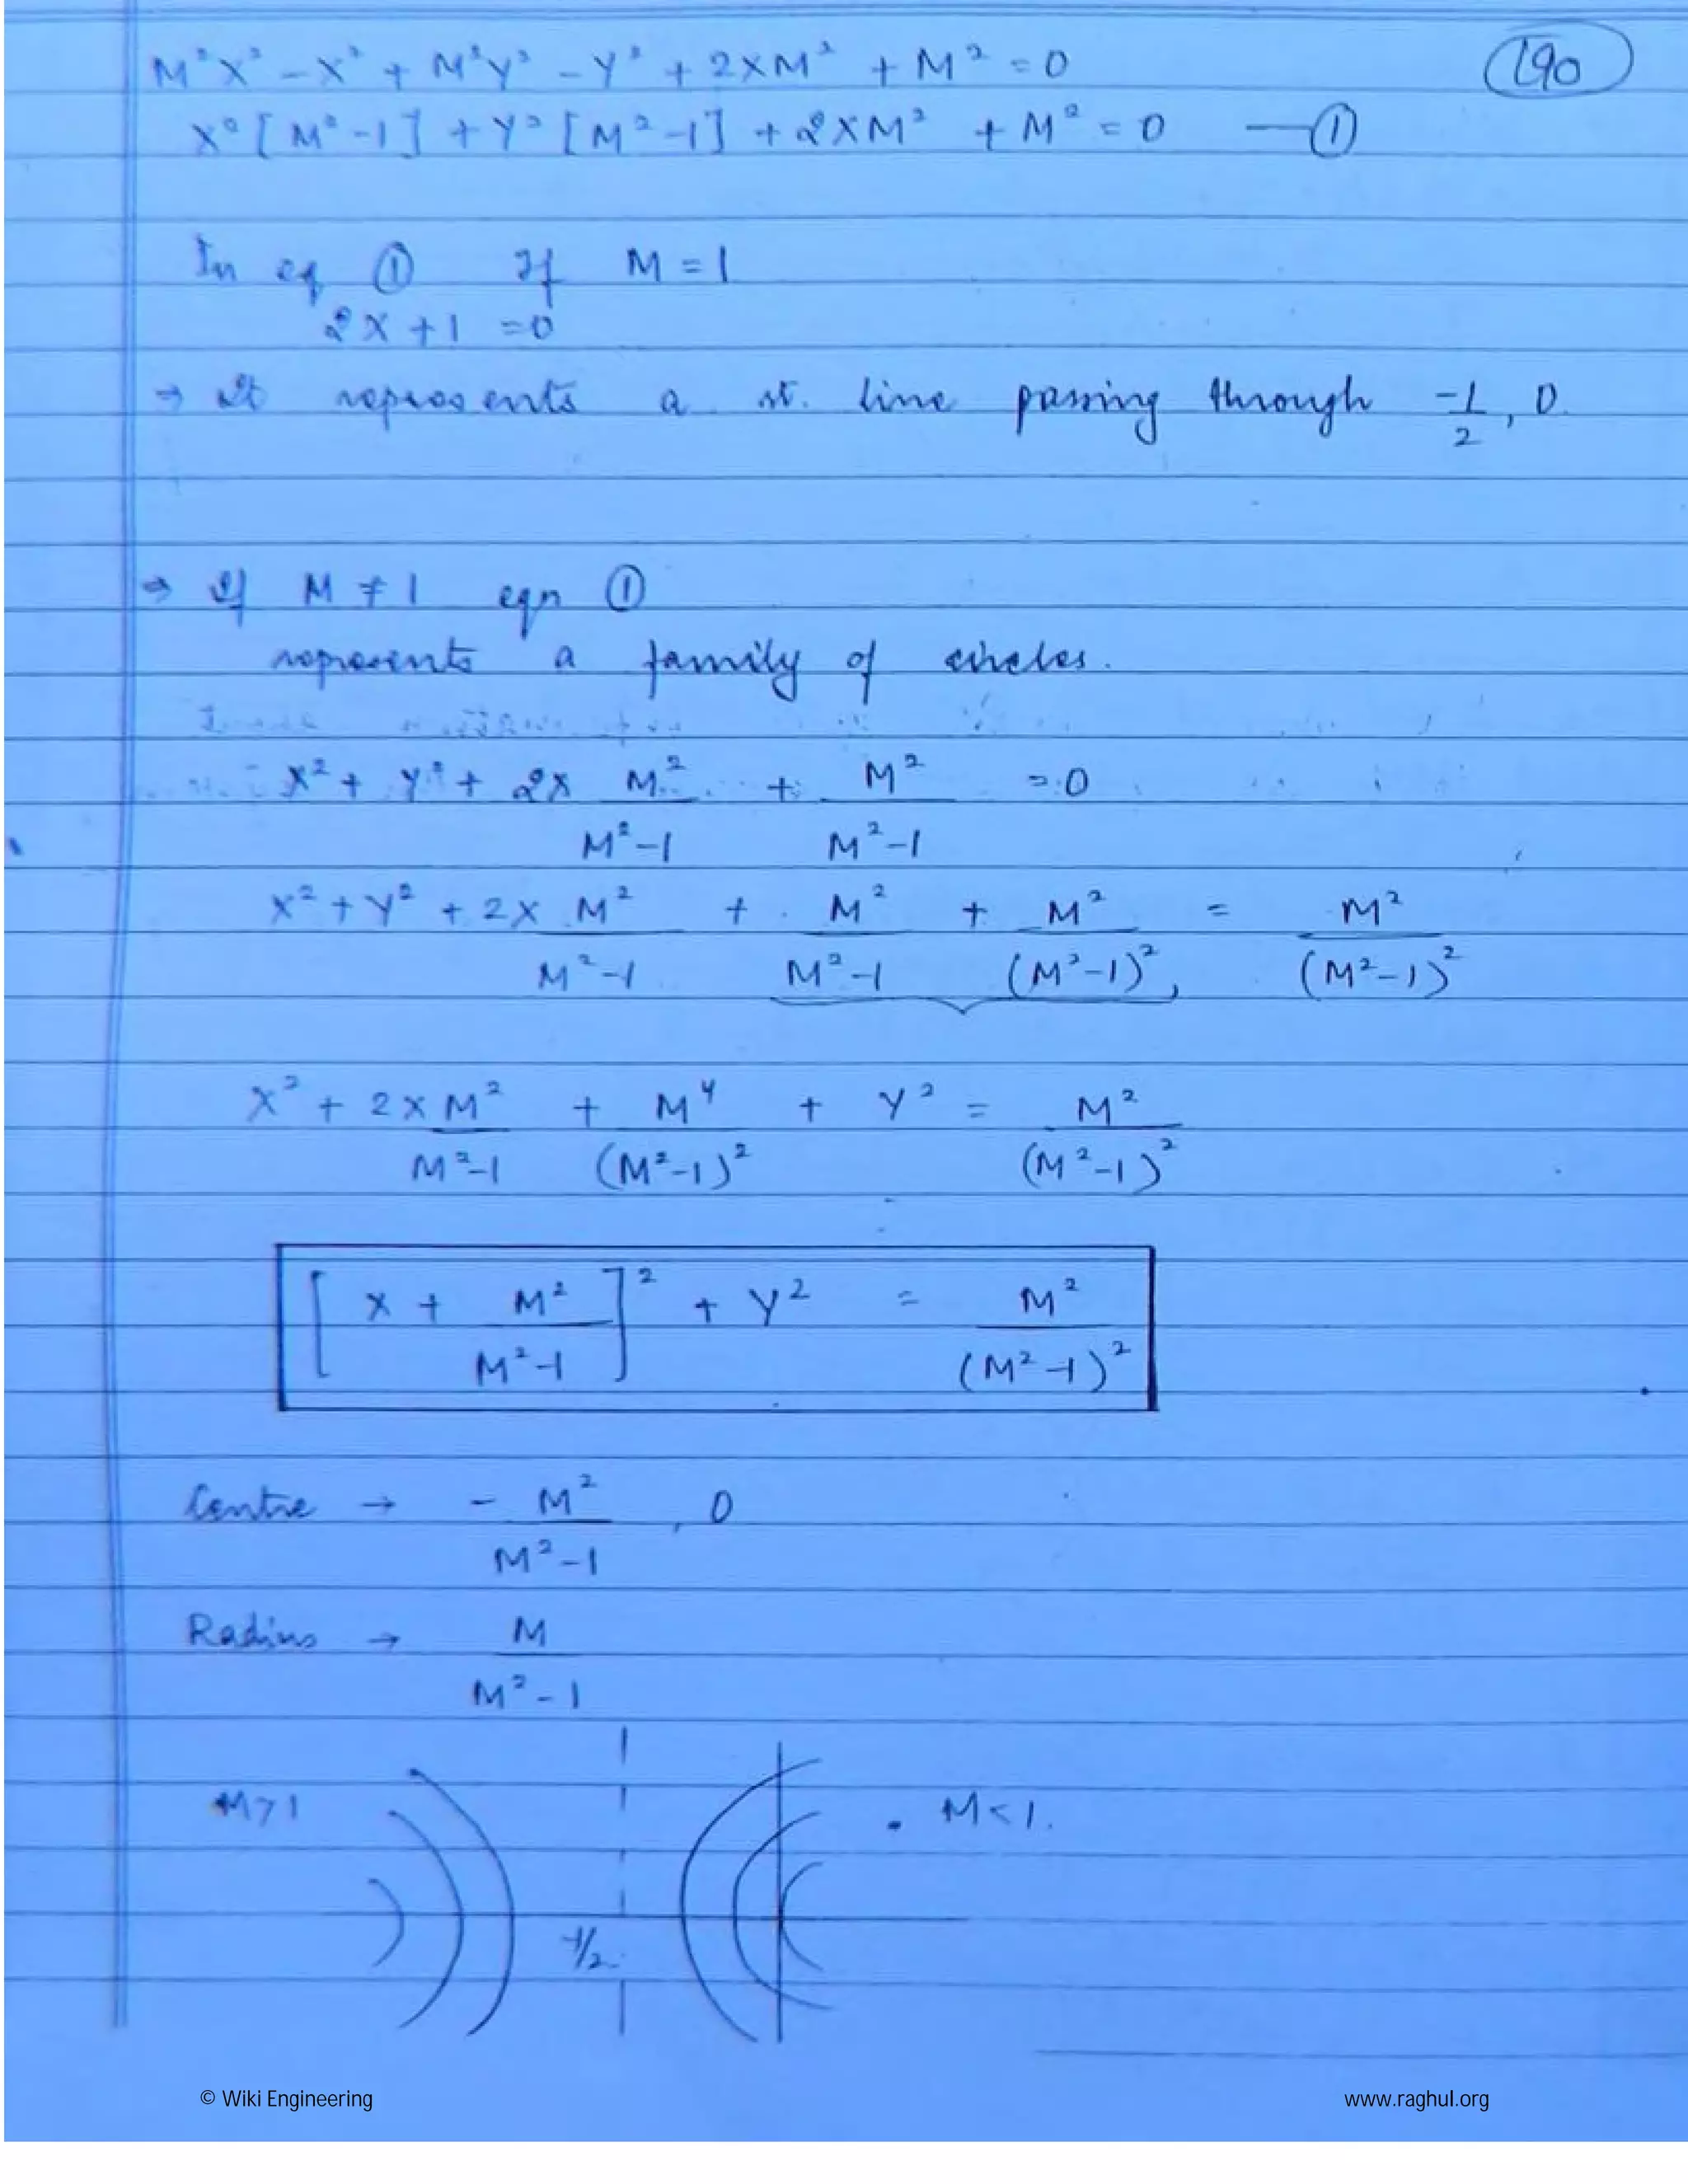 M²X² - X² + M²Y² - Y² + 2XM² + M² = 0
190
X² [M² - 1] + Y² [M² - 1] + 2XM² + M² = 0 — ①
In eq ① If M = 1
2X + 1 = 0
→ It represents a st. line passing through -1/2, 0.
→ If M ≠ 1 eqn ①
represents a family of circles.
X² + Y² + 2X M²/(M² - 1) + M²/(M² - 1) = 0
X² + Y² + 2X M²/(M² - 1) + M²/(M² - 1) + M²/(M² - 1)² = M²/(M² - 1)²
X² + 2X M²/(M² - 1) + M⁴/(M² - 1)² + Y² = M²/(M² - 1)²
[X + M²/(M² - 1)]² + Y² = M²/(M² - 1)²
Centre → - M²/(M² - 1), 0
Radius → M/(M² - 1)
M > 1
M < 1.
-1/2
© Wiki Engineering
www.raghul.org